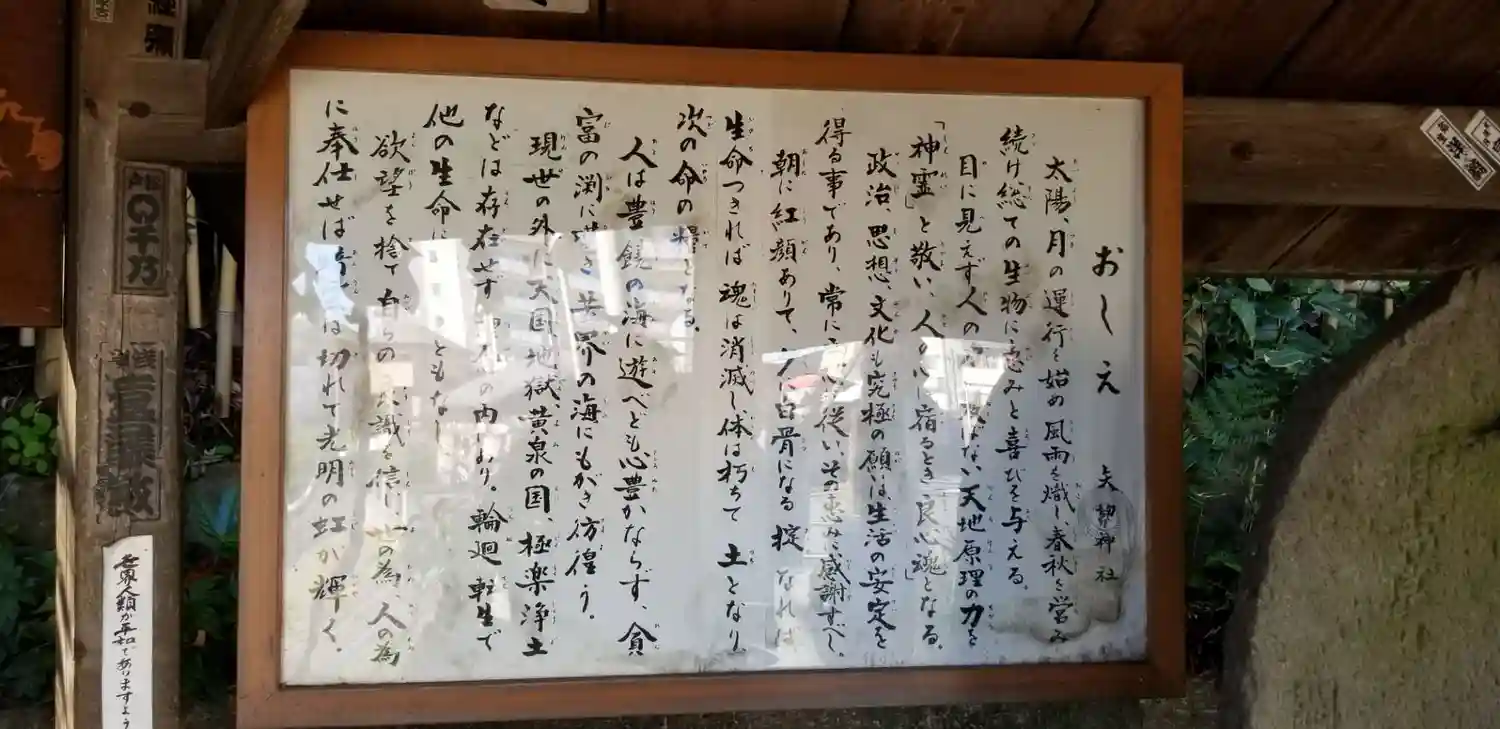 おしえ
矢野神社
太陽、月の運行を始め風雨を熾し、春秋を営み
続け総ての生物に恵みと喜びを与える。
目に見えず人の ない天地原理の力を
「神霊」と敬い、人の心に宿るとき「良心魂」となる。
政治、思想、文化も究極の願いは生活の安定を
得る事であり、常に 従い、その恵みに感謝すべし。
朝に紅顔ありて、夕に白骨になる掟なれば
生命つきれば魂は消滅し、体は朽ちて土となり
次の命の糧となる。
人は豊饒の海に遊べども心豊かならず、貪
富の渕に 苦界の海にもがき彷徨う。
現世の外に天国、地獄、黄泉の国、極楽浄土
などは存在せず の内にあり。輪廻転生で
他の生命に ともなし
欲望を捨て自らの 識を信じ世の為、人の為
に奉仕せば は切れて光明の虹が輝く。
千乃
世界人類が平和でありますよう